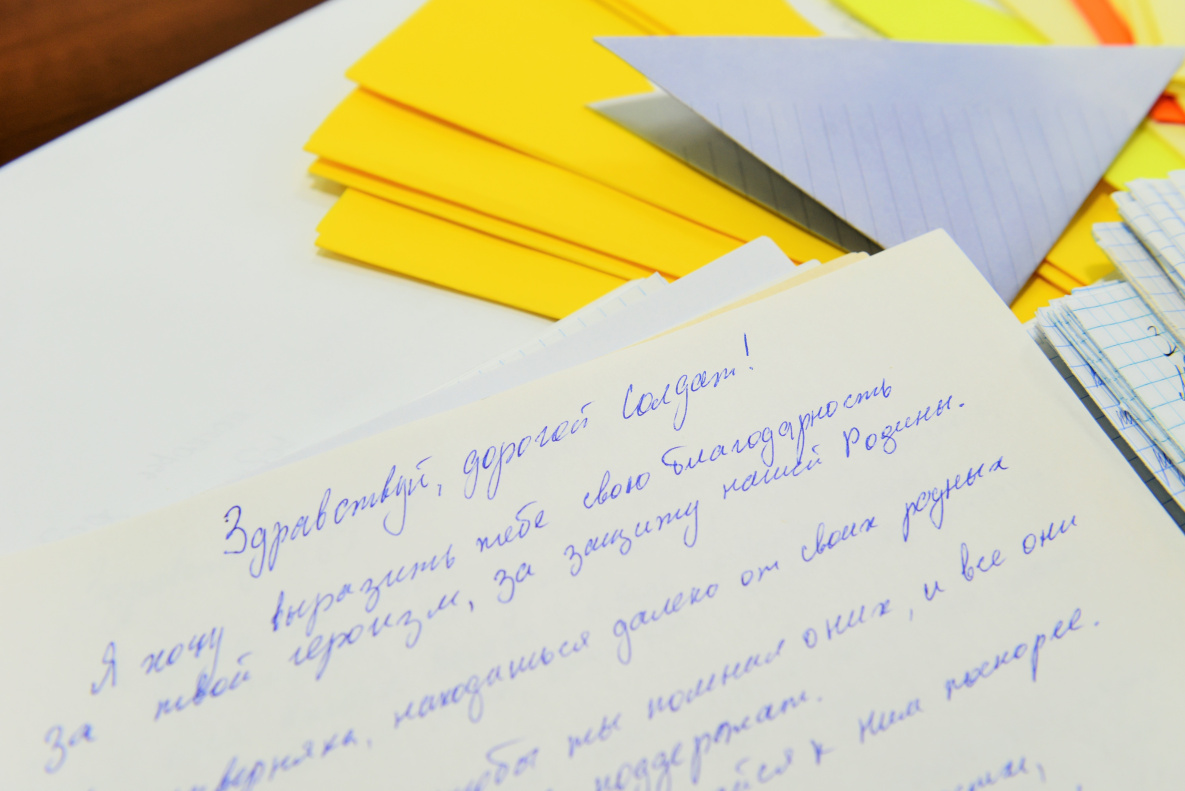 Здравствуй, дорогой Солдат!
Я хочу выразить тебе свою благодарность
за твой героизм, за защиту нашей Родины.
находиться далеко от своих родных
чтобы ты помнил о них, и все они
поддержат.
к ним поскорее.